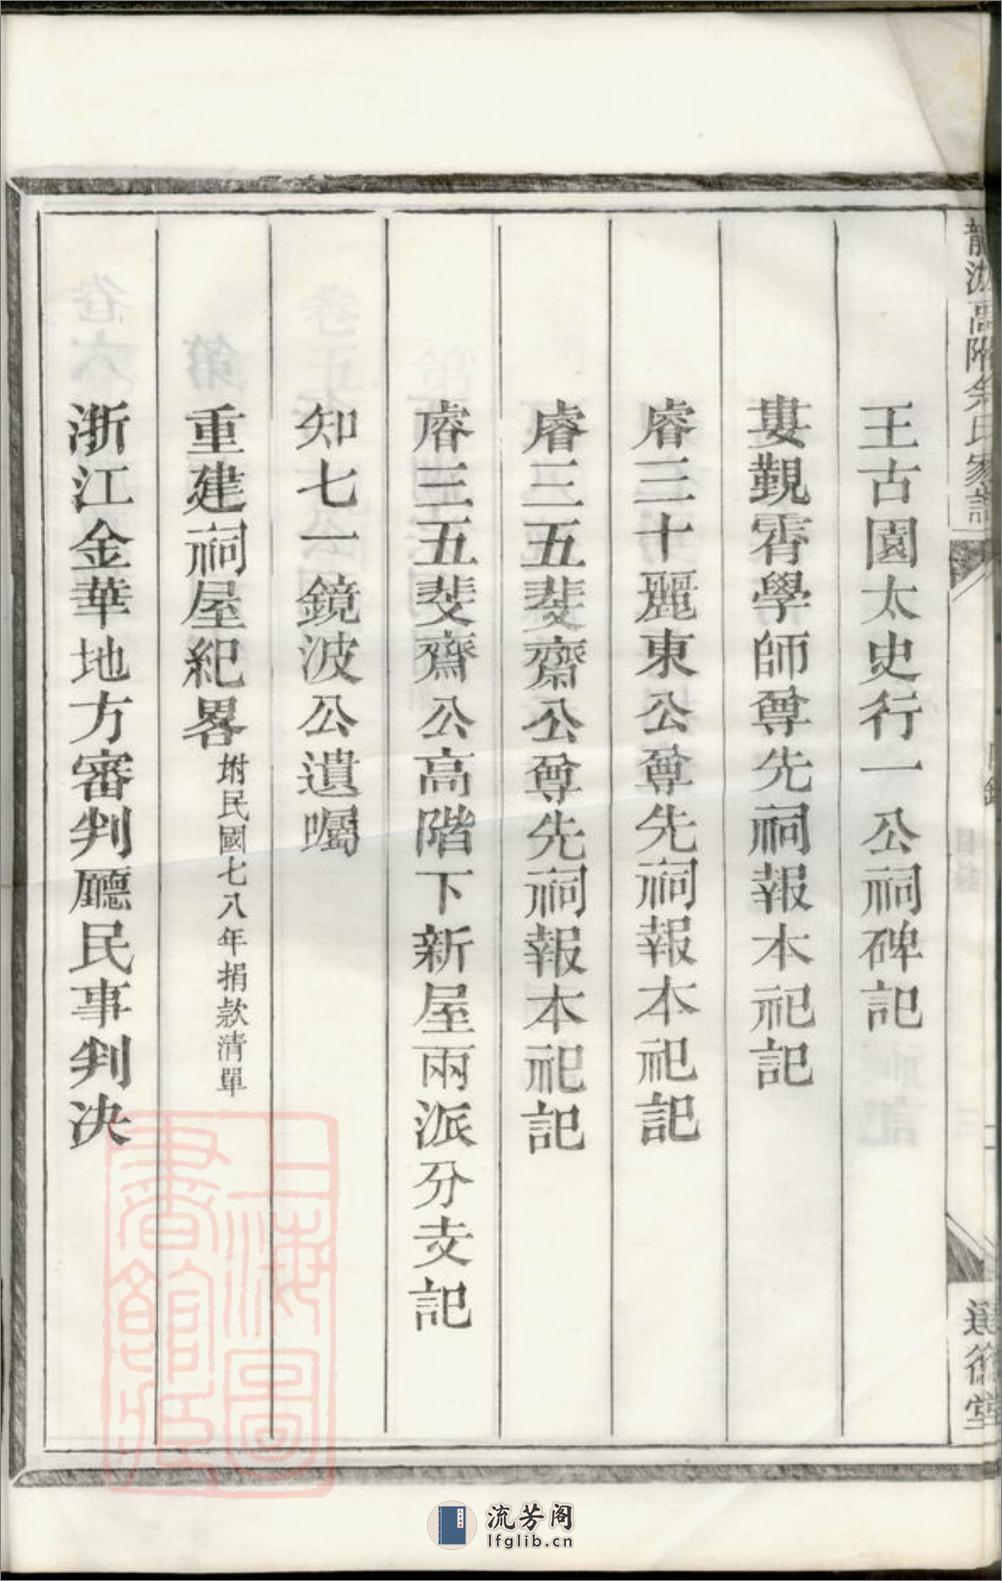 王古園太史行一公祠碑記
婁觐霄學師尊先祠報本祀記
睿三十麗東公尊先祠報本祀記
睿三五斐齋公尊先祠報本祀記
睿三五斐齋公高階下新屋兩派分支記
知七一鏡波公遺囑
重建祠屋紀畧坿民國七八年捐款清單
浙江金華地方審判廳民事判決
上海圖書館藏
流芳阁
lfglib.cn